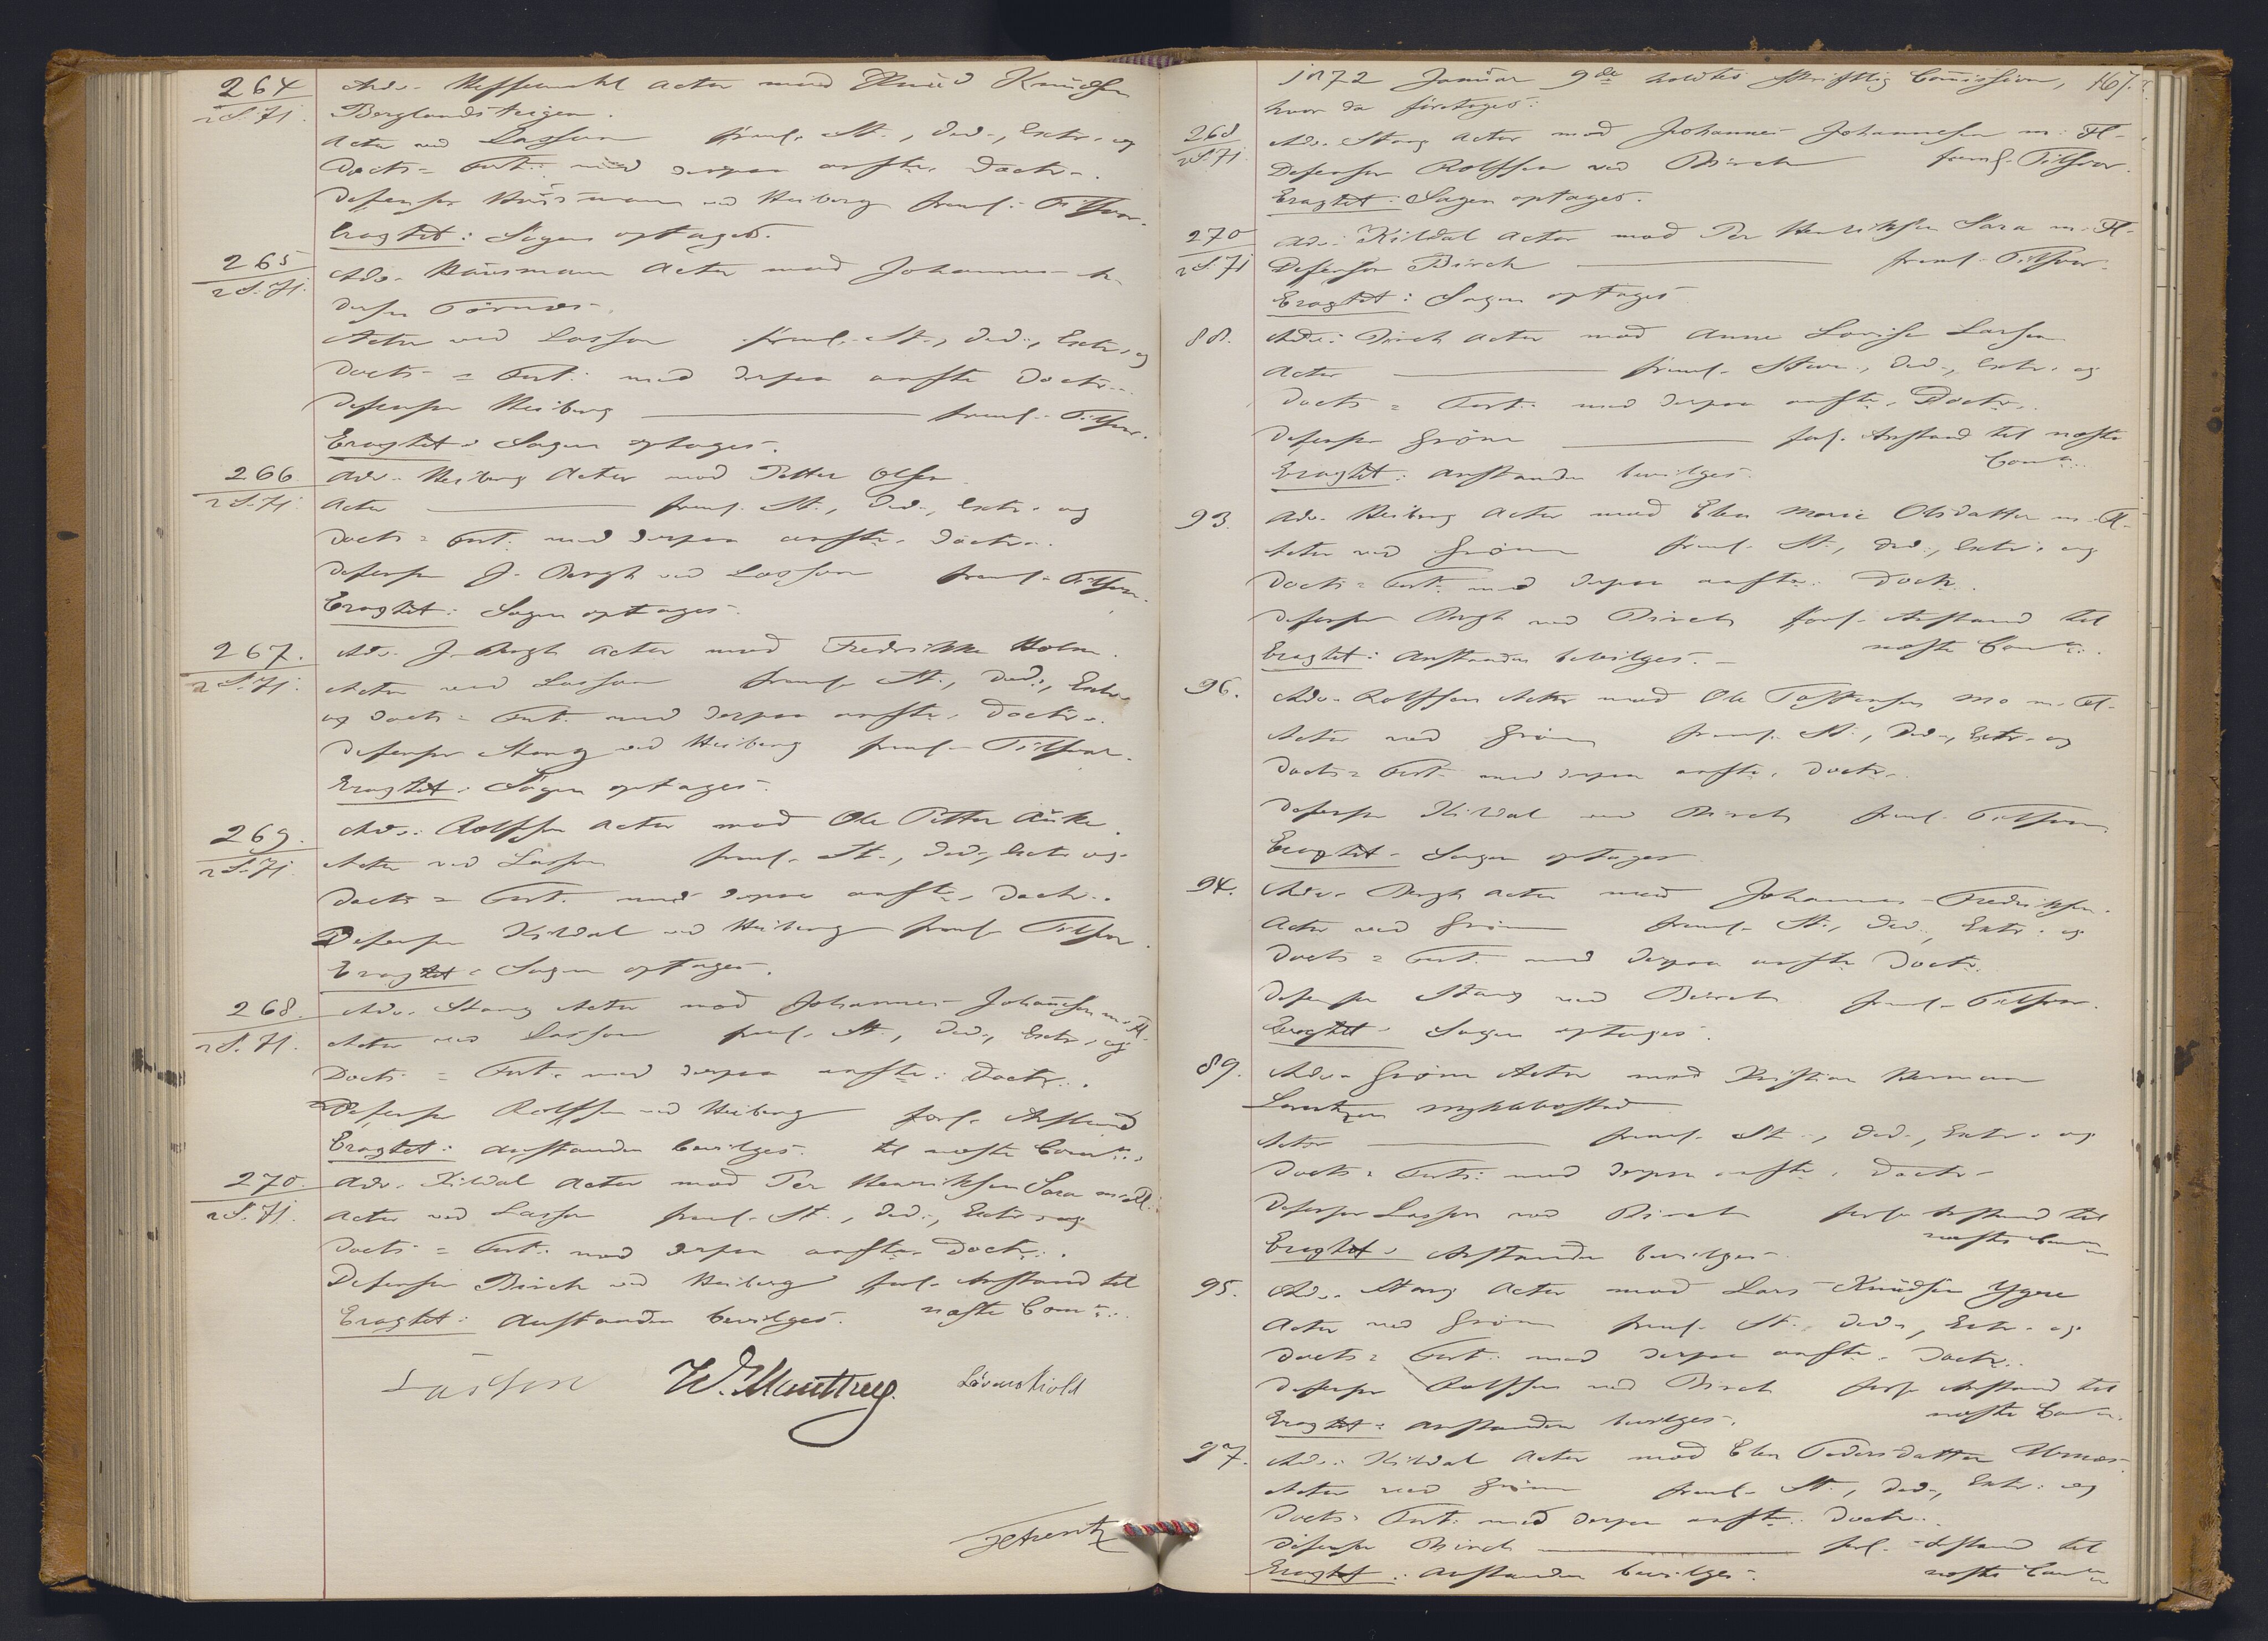 264
2 S. 71.
Adv. Hesselmahl Actor mod Knud Knudsen
Berglandsteigen.
Actor ved Lasson freml. St., Ded., Extr. og
Docts = Fort. med derpaa anfte. Doctr.
Defensor Husmann ved Heiberg freml. Tilsvar.
Eragtet: Sagen optages.
265
2 S. 71.
Adv. Husmann Actor mod Johannes
Tornæs.
Actor ved Lasson freml. St., Ded., Extr. og
Docts = Fort. med derpaa anfte Doctr.
Defensor Heiberg freml. Tilsvar.
Eragtet: Sagen optages.
266
2 S. 71.
Adv. Heiberg Actor mod Petter Olsen
Actor freml. St., Ded., Extr. og
Docts = Fort. med derpaa anfte. Doctr.
Defensor J. Bergh ved Lasson freml. Tilsvar.
Eragtet: Sagen optages.
267.
2 S. 71.
Adv. J. Bergh Actor mod Fredrikke Holm.
Actor ved Lasson freml. St., Ded., Extr.
og Docts = Fort. med derpaa anfte. Doctr.
Defensor Stang ved Heiberg freml. Tilsvar.
Eragtet: Sagen optages.
269.
2 S. 71.
Adv. Rolfsen Actor mod Ole Petter Auke.
Actor ved Lasson freml. St., Ded., Extr. og
Docts = Fort. med derpaa anfte. Doctr.
Defensor Kildal ved Heiberg freml. Tilsvar.
Eragtet: Sagen optages.
268.
2 S. 71.
Adv. Stang Actor mod Johannes Johannesen m. Fl.
Actor ved Lasson freml. St., Ded., Extr. og
Docts = Fort. med derpaa anfte. Doctr.
Defensor Rolfsen ved Heiberg forl. Anstand
Eragtet: Anstanden bevilges. til næste Comn.
270.
2 S. 71.
Adv. Kildal Actor mod Per Henriksen Sara m. Fl.
Actor ved Lasson freml. St., Ded., Extr. og
Docts = Fort. med derpaa anfte. Doctr.
Defensor Birch ved Heiberg forl. Anstand til
Eragtet: Anstanden bevilges. næste Comn.
Lasson W. Manthey. Løvenskiold
1872 Januar 9de holdtes skriftlig Commission, 167.
hvor da foretoges:
268
2 S. 71.
Adv. Stang Actor mod Johannes Johannesen m. Fl.
Defensor Rolfsen ved Birch freml. Tilsvar.
Eragtet: Sagen optages.
270
2 S. 71
Adv. Kildal Actor mod Per Henriksen Sara m. Fl.
Defensor Birch freml. Tilsvar.
Eragtet: Sagen optages
88.
Adv. Birch Actor mod Anne Lovise Larsen
Actor freml. Stevn., Ded., Extr. og
Docts = Fort. med derpaa anfte. Doctr.
Defensor Grønn forl. Anstand til næste
Eragtet: Anstanden bevilges. Comn.
93.
Adv. Heiberg Actor mod Elen Marie Olsdatter m. Fl.
Actor ved Grønn freml. St., Ded., Extr. og
Docts = Fort. med derpaa anfte. Doctr.
Defensor Bergh ved Birch forl. Anstand til
Eragtet: Anstanden bevilges. næste Comn.
96.
Adv. Rolfsen Actor mod Ole Tostensen Mo m. Fl.
Actor ved Grønn freml. St., Ded., Extr. og
Docts = Fort. med derpaa anfte. Doctr.
Defensor Kildal ved Birch freml. Tilsvar.
Eragtet. Sagen optages
94.
Adv. Bergh Actor mod Johannes Fredriksen.
Actor ved Grønn freml. St., Ded., Extr. og
Docts = Fort. med derpaa anfte Doctr.
Defensor Stang ved Birch freml. Tilsvar.
Eragtet. Sagen optages.
89.
Adv. Grønn Actor mod Kristian Herman
Lorentzen Myklebostad
Actor freml. St., Ded., Extr. og
Docts = Fort. med derpaa anfte. Doctr.
Defensor Lasson ved Birch forl. Anstand til
Eragtet. Anstanden bevilges. næste Comn
95.
Adv. Stang Actor mod Lars Knudsen Ygre
Actor ved Grønn freml. St., Ded., Extr. og
Docts = Fort. med derpaa anfte. Doctr.
Defensor Rolfsen ved Birch forl. Anstand til
Eragtet: Anstanden bevilges. næste Comn.
97.
Adv. Kildal Actor mod Elen Pedersdatter
Actor ved Grønn freml. St., Ded., Extr. og
Docts = Fort. med derpaa anfte. Doctr.
Defensor Birch forl. Anstand til
Eragtet: Anstanden bevilges. næste Comn